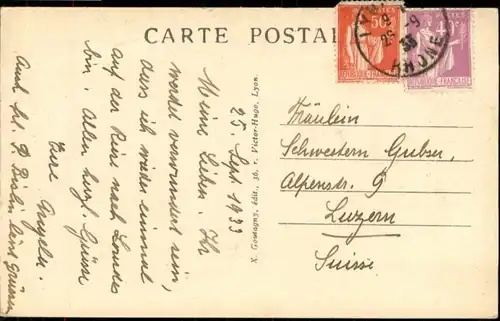 CARTE POSTALE
25. Sept. 1933
Meine Lieben. Ihr
werdet verwundert sein,
dass ich wieder einmal
auf der Reise nach Lourdes
bin. Allen herzl. Grüsse
Eure
Auch
X. Goutagny, édit., 36, r. Victor-Hugo, Lyon.
Fräulein
Schwestern Gubser,
Alpenstr. 9
Luzern
Suisse
POSTES
50
REPUBLIQUE FRANÇAISE
REPUBLIQUE FRANÇAISE
RHONE